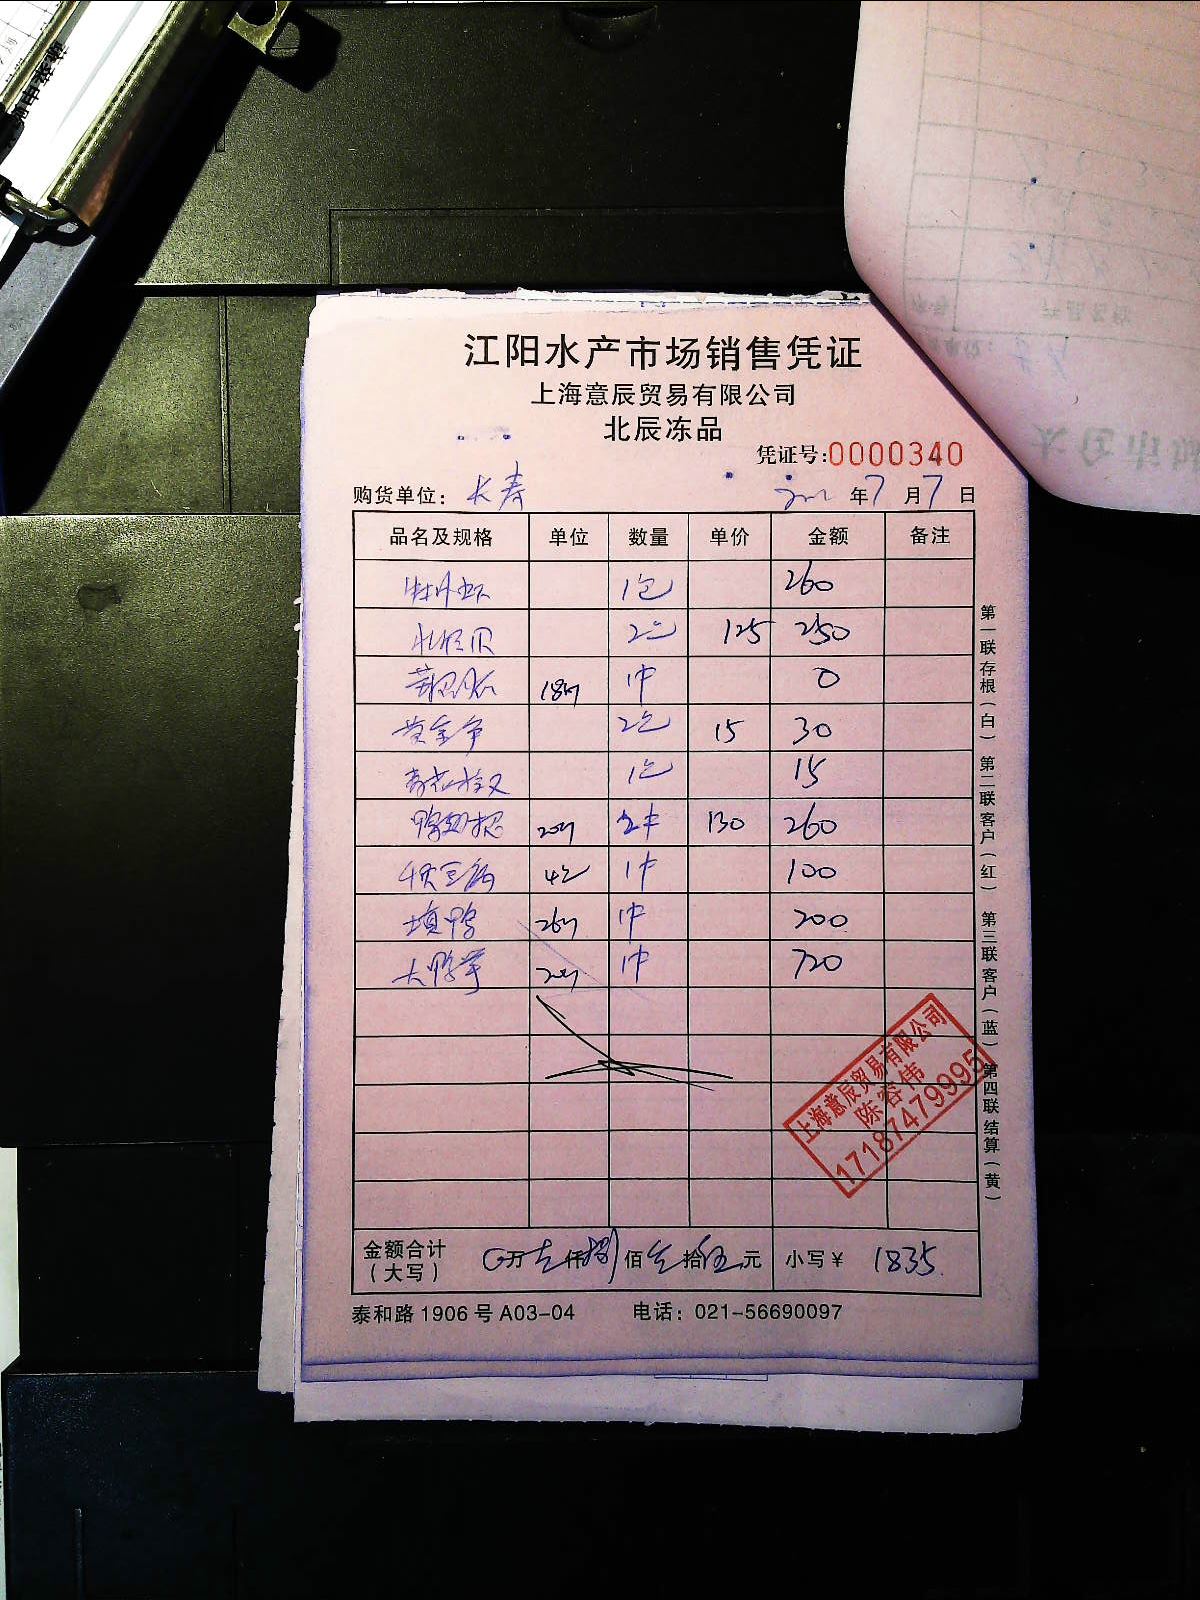 江阳水产市场销售凭证
上海意辰贸易有限公司
北辰冻品
凭证号:0000340
购货单位: 长寿 年7月7日
品名及规格 单位 数量 单价 金额 备注
牡丹虾 1包 260
北极贝 2包 125 250
1件 0
黄金 2包 15 30
1包 15
鸭翅 2件 130 260
千页豆腐 1件 100
填鸭 1件 200
大鸭掌 1件 720
金额合计(大写) 0万 壹仟 捌佰 叁拾 伍元 小写¥ 1835
泰和路1906号A03-04 电话: 021-56690097
第一联存根(白) 第二联客户(红) 第三联客户(蓝) 第四联结算(黄)
上海意辰贸易有限公司
陈容伟
17187479995